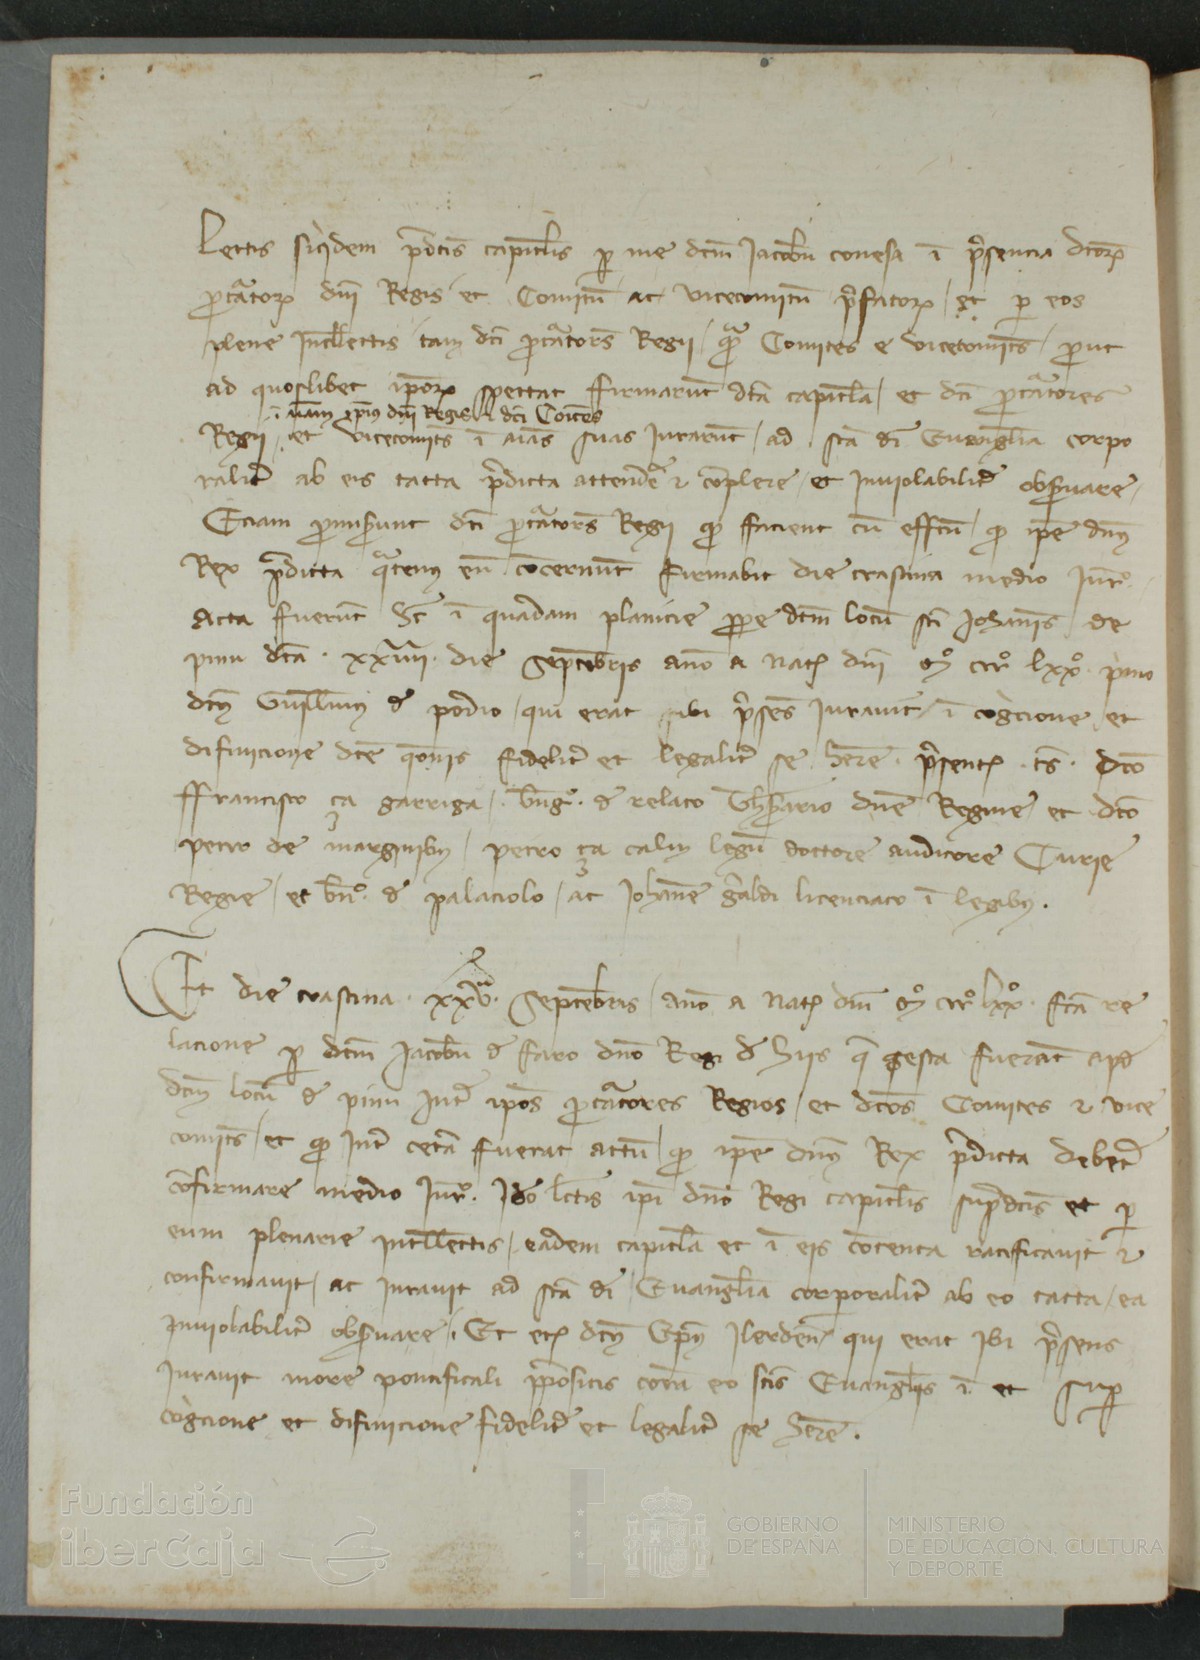 Lectis siqidem pdcis capitlis p me dcm Jacobu conesa i psencia dcorz
pcatorz dni Regis et Comitu ac vicecomitu pfatorz / et p eos
plene Intllectis / tam dci pcators Regii / qm Comites e vicecomits / put
ad quoslibet iporz spectat ffirmarut dca capitla / et dci pcatores
i aiam ipius dni Regis i dci Coites
Regii / et vicecomits i aias suas Jurarut / ad sca di Euangelia corpo
ralit ab eis tacta pdicta attende & complere / et Inviolabilit obsuare /
Eciam pmisunt dci pcators Regii q facient cu effcu / q ipe dns
Rex pdicta qtenus eu cocernut firmabit die crastina medio Jur.
Acta fuerut hc i quadam planicie ppe dcm locu sci Johanis de
pinu dca . xxiiii . die Septebris ano a Nat dni mo ccco lxxo pmo
dcus Guillmus de podio / qui erat ibi psens Jurauit / i cogcione et
difinicione dce qonis fidelit et legalit se here . psentz . ts . dco
ffrancisco ça garriga / . bngo . de relato Thesario dne Regine / et dco
petro de marginibz / petro ça calm legu doctore auditore Curie
Regie / et bno . de palaciolo / ac Johane graldi licenciato i legibz .
Et die crastina . xxva . Septebris / ano a Nat dni mo ccco lxxo . fca re
lacione p dcm Jacobu de faro dno Regi de hiis q gesta fuerat apd
dcum locu de pinu Int ipos pcatores Regios / et dcos Comites & vice
comits / et q Int ceta ffuerat actu / q ipe dns Rex pdicta debet
cofirmare medio Jur. Ido lctis ipi dno Regi capitlis supdcis et p
eum plenarie intllectis / eadem capitla et i eis cotenta ratificauit &
confirmauit / ac iurauit ad sca di Euangelia corporalit ab eo tacta / ea
Inviolabilit obsuare / . Et etz dcus Eps Ilerden / qui erat Ibi psens
Jurauit more pontificali ppositis cora eo scis Euangliis i et sup
cogcione et difinicione fidelit et legalit se here .
Fundación
iberCaja
GOBIERNO
DE ESPAÑA
MINISTERIO
DE EDUCACIÓN, CULTURA
Y DEPORTE